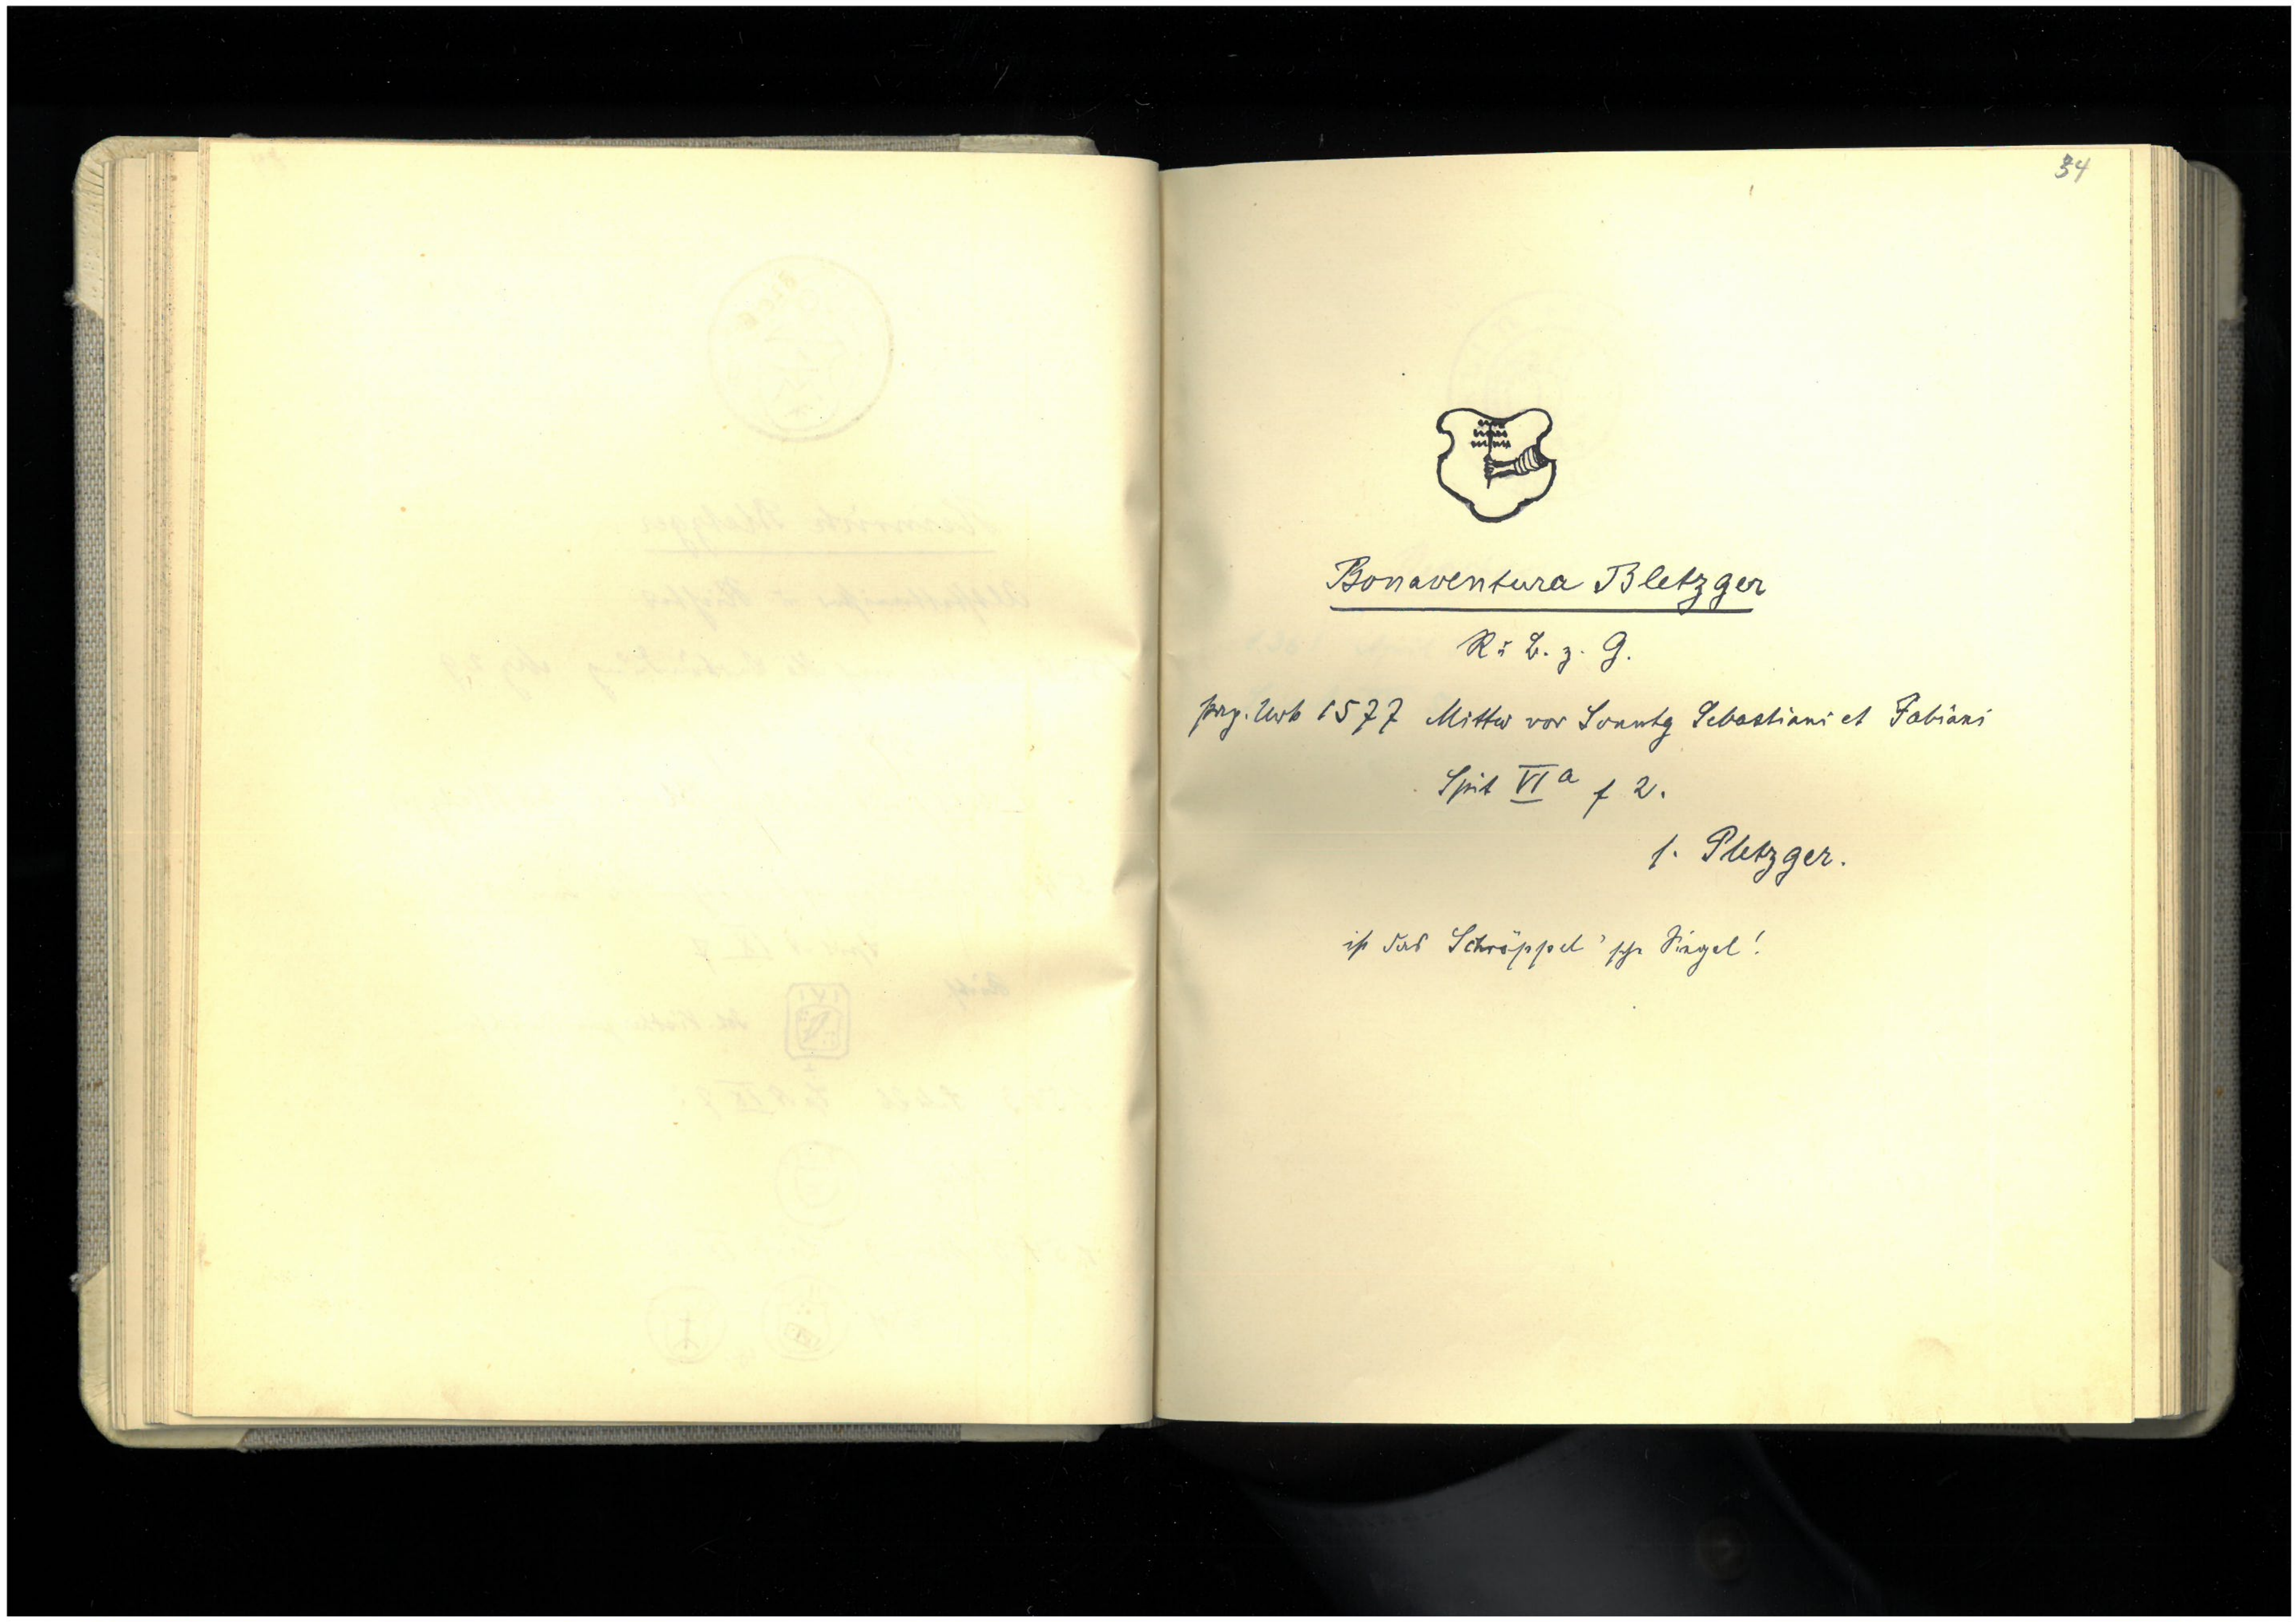 34
Bonaventura Bletzger
R. u. B. z. G.
perg. Urk 1577 Mittw vor Sonntg Sebastiani et Fabiani
Spit VI a f 2.
s. Pletzger.
ist das Schröppel'sche Siegel!